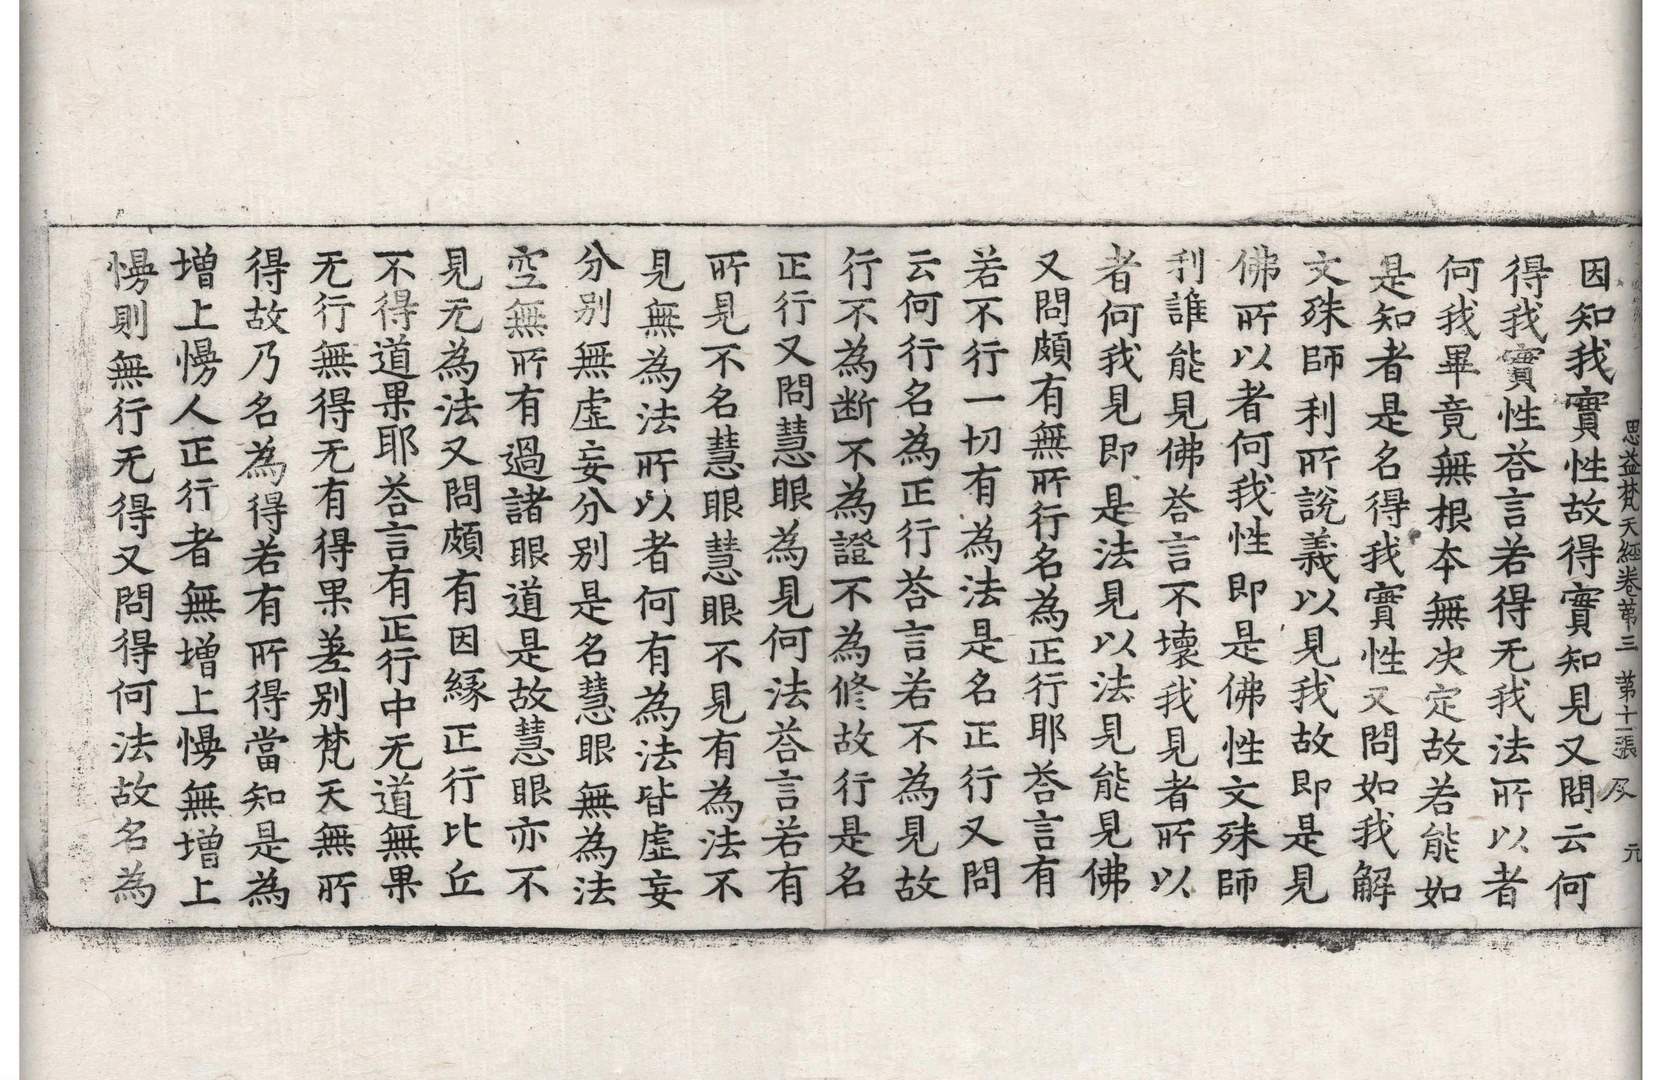 思益梵天經卷第三 第十二張 及 元
因知我實性故得實知見又問云何
得我實性荅言若得无我法所以者
何我畢竟無根本無决定故若能如
是知者是名得我實性又問如我解
文殊師利所說義以見我故即是見
佛所以者何我性即是佛性文殊師
利誰能見佛荅言不壞我見者所以
者何我見即是法見以法見能見佛
又問頗有無所行名為正行耶荅言有
若不行一切有為法是名正行又問
云何行名為正行荅言若不為見故
行不為断不為證不為修故行是名
正行又問慧眼為見何法荅言若有
所見不名慧眼慧眼不見有為法不
見無為法所以者何有為法皆虛妄
分別無虛妄分別是名慧眼無為法
空無所有過諸眼道是故慧眼亦不
見无為法又問頗有因緣正行比丘
不得道果耶荅言有正行中无道無果
无行無得无有得果差別梵天無所
得故乃名為得若有所得當知是為
增上慢人正行者無增上慢無增上
慢則無行无得又問得何法故名為